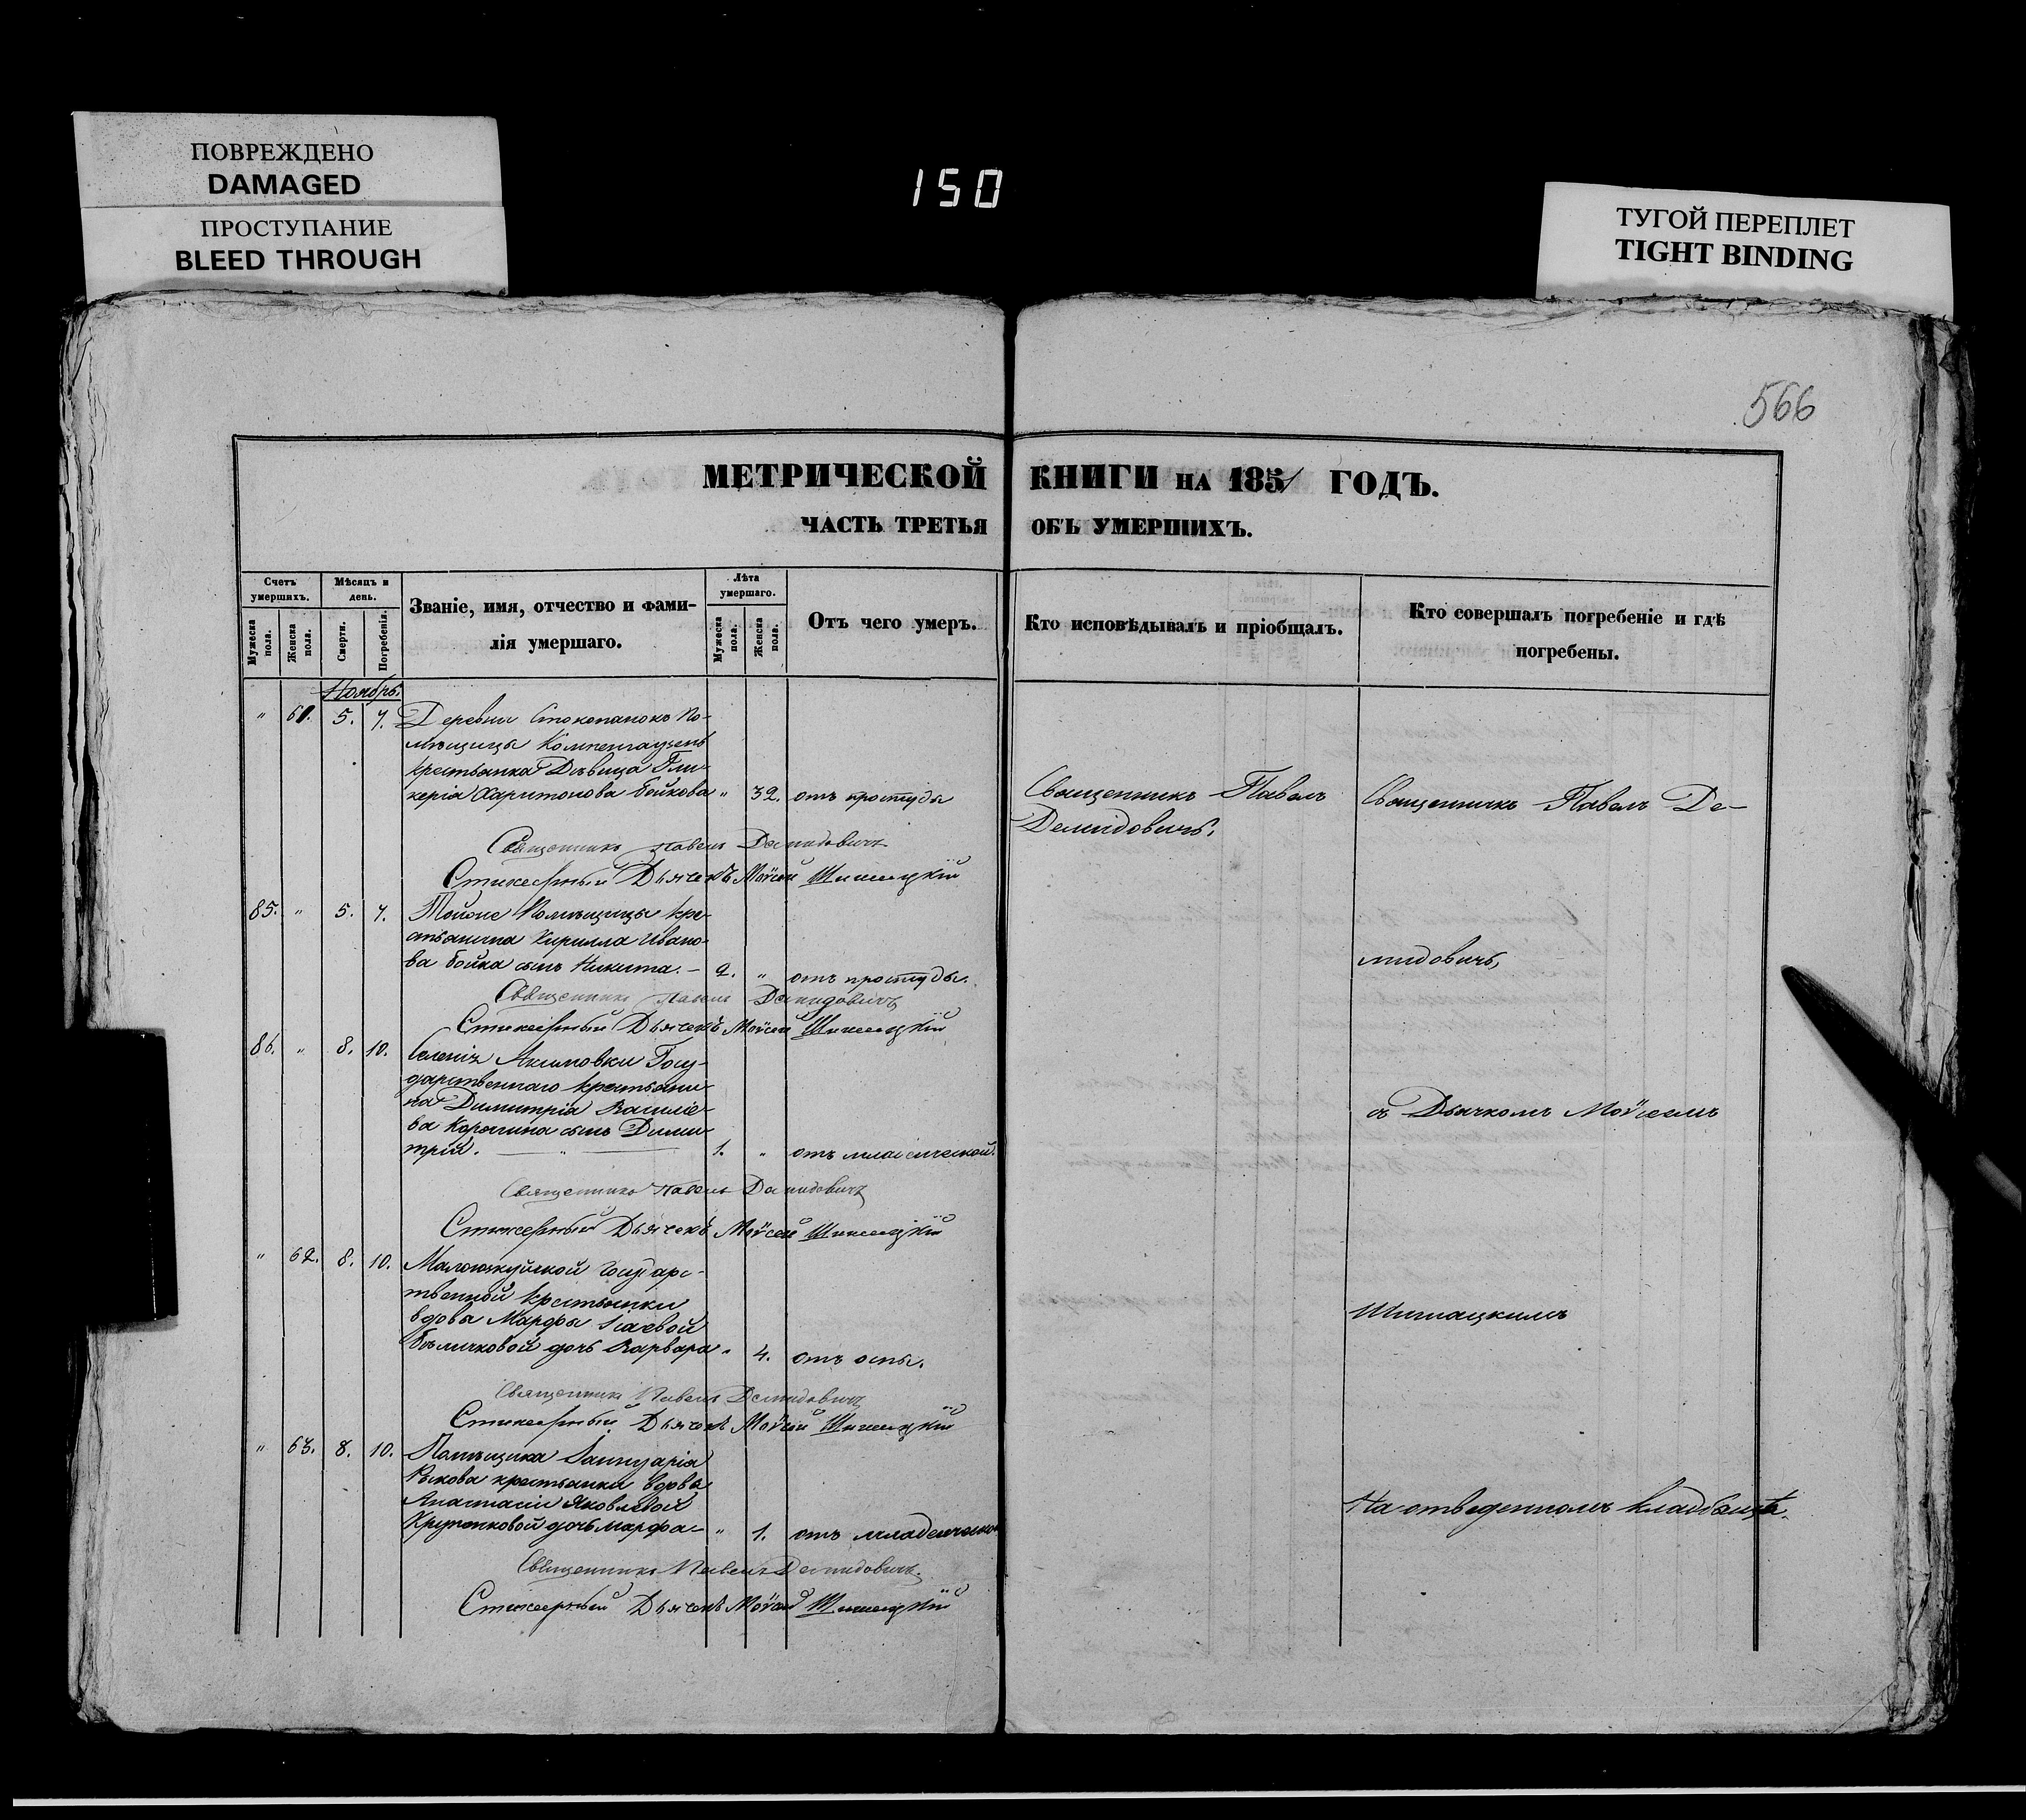 ПОВРЕЖДЕНО
DAMAGED
ПРОСТУПАНИЕ
BLEED THROUGH
150
ТУГОЙ ПЕРЕПЛЕТ
TIGHT BINDING
566
МЕТРИЧЕСКОЙ КНИГИ НА 1851 ГОДЪ.
ЧАСТЬ ТРЕТЬЯ ОБЪ УМЕРШИХЪ.
Счетъ умершихъ.
Мужеска пола.
Женска пола.
Мѣсяцъ и день.
Смерти.
Погребенія.
Званіе, имя, отчество и фами-
лія умершаго.
Лѣта умершаго.
Мужеска пола.
Женска пола.
Отъ чего умеръ.
Кто исповѣдывалъ и пріобщалъ.
Кто совершалъ погребеніе и гдѣ
погребены.
Ноябрь.
" 61. 5. 7. Деревни Стокопанокъ По-
мѣщицы
крестьянка Дѣвица Гли-
керіа Харитонова Бойкова " 32. отъ простуды
Священникъ Павелъ
Демидовичъ.
Священникъ Павелъ Де-
Священникъ Павелъ Демидовичъ
Стихарный Дьячекъ Моѵсей
85. " 5. 7. Тойже Помѣщицы кре-
стьянина Кирилла Ивано-
ва Бойка сынъ Никита. – 2. " отъ простуды.
мидовичъ,
Священникъ Павелъ Демидовичъ
Стихарный Дьячекъ Моѵсей
86. " 8. 10. Селенія Акимовки Госу-
дарственнаго крестьяни-
на Димитріа Василіе-
ва сынъ Дими-
трій. 1. " отъ младенческой.
съ Дьячкомъ Моѵсеемъ
Священникъ Павелъ Демидовичъ
Стихарный Дьячекъ Моѵсей
" 62. 8. 10. Государ-
твенной крестьянки
вдовы Марфы
дочь Варвара " 4. отъ оспы.
Священникъ Павелъ Демидовичъ
Стихарный Дьячекъ Моѵсей
" 63. 8. 10. Помѣщика Іаннуаріа
Рыкова крестьянки вдовы
Анастасіи Яковлевой
дочь Марфа – " 1. отъ младенческой
На отведенномъ кладбищѣ.
Священникъ Павелъ Демидовичъ.
Стихарный Дьячекъ Моѵсей